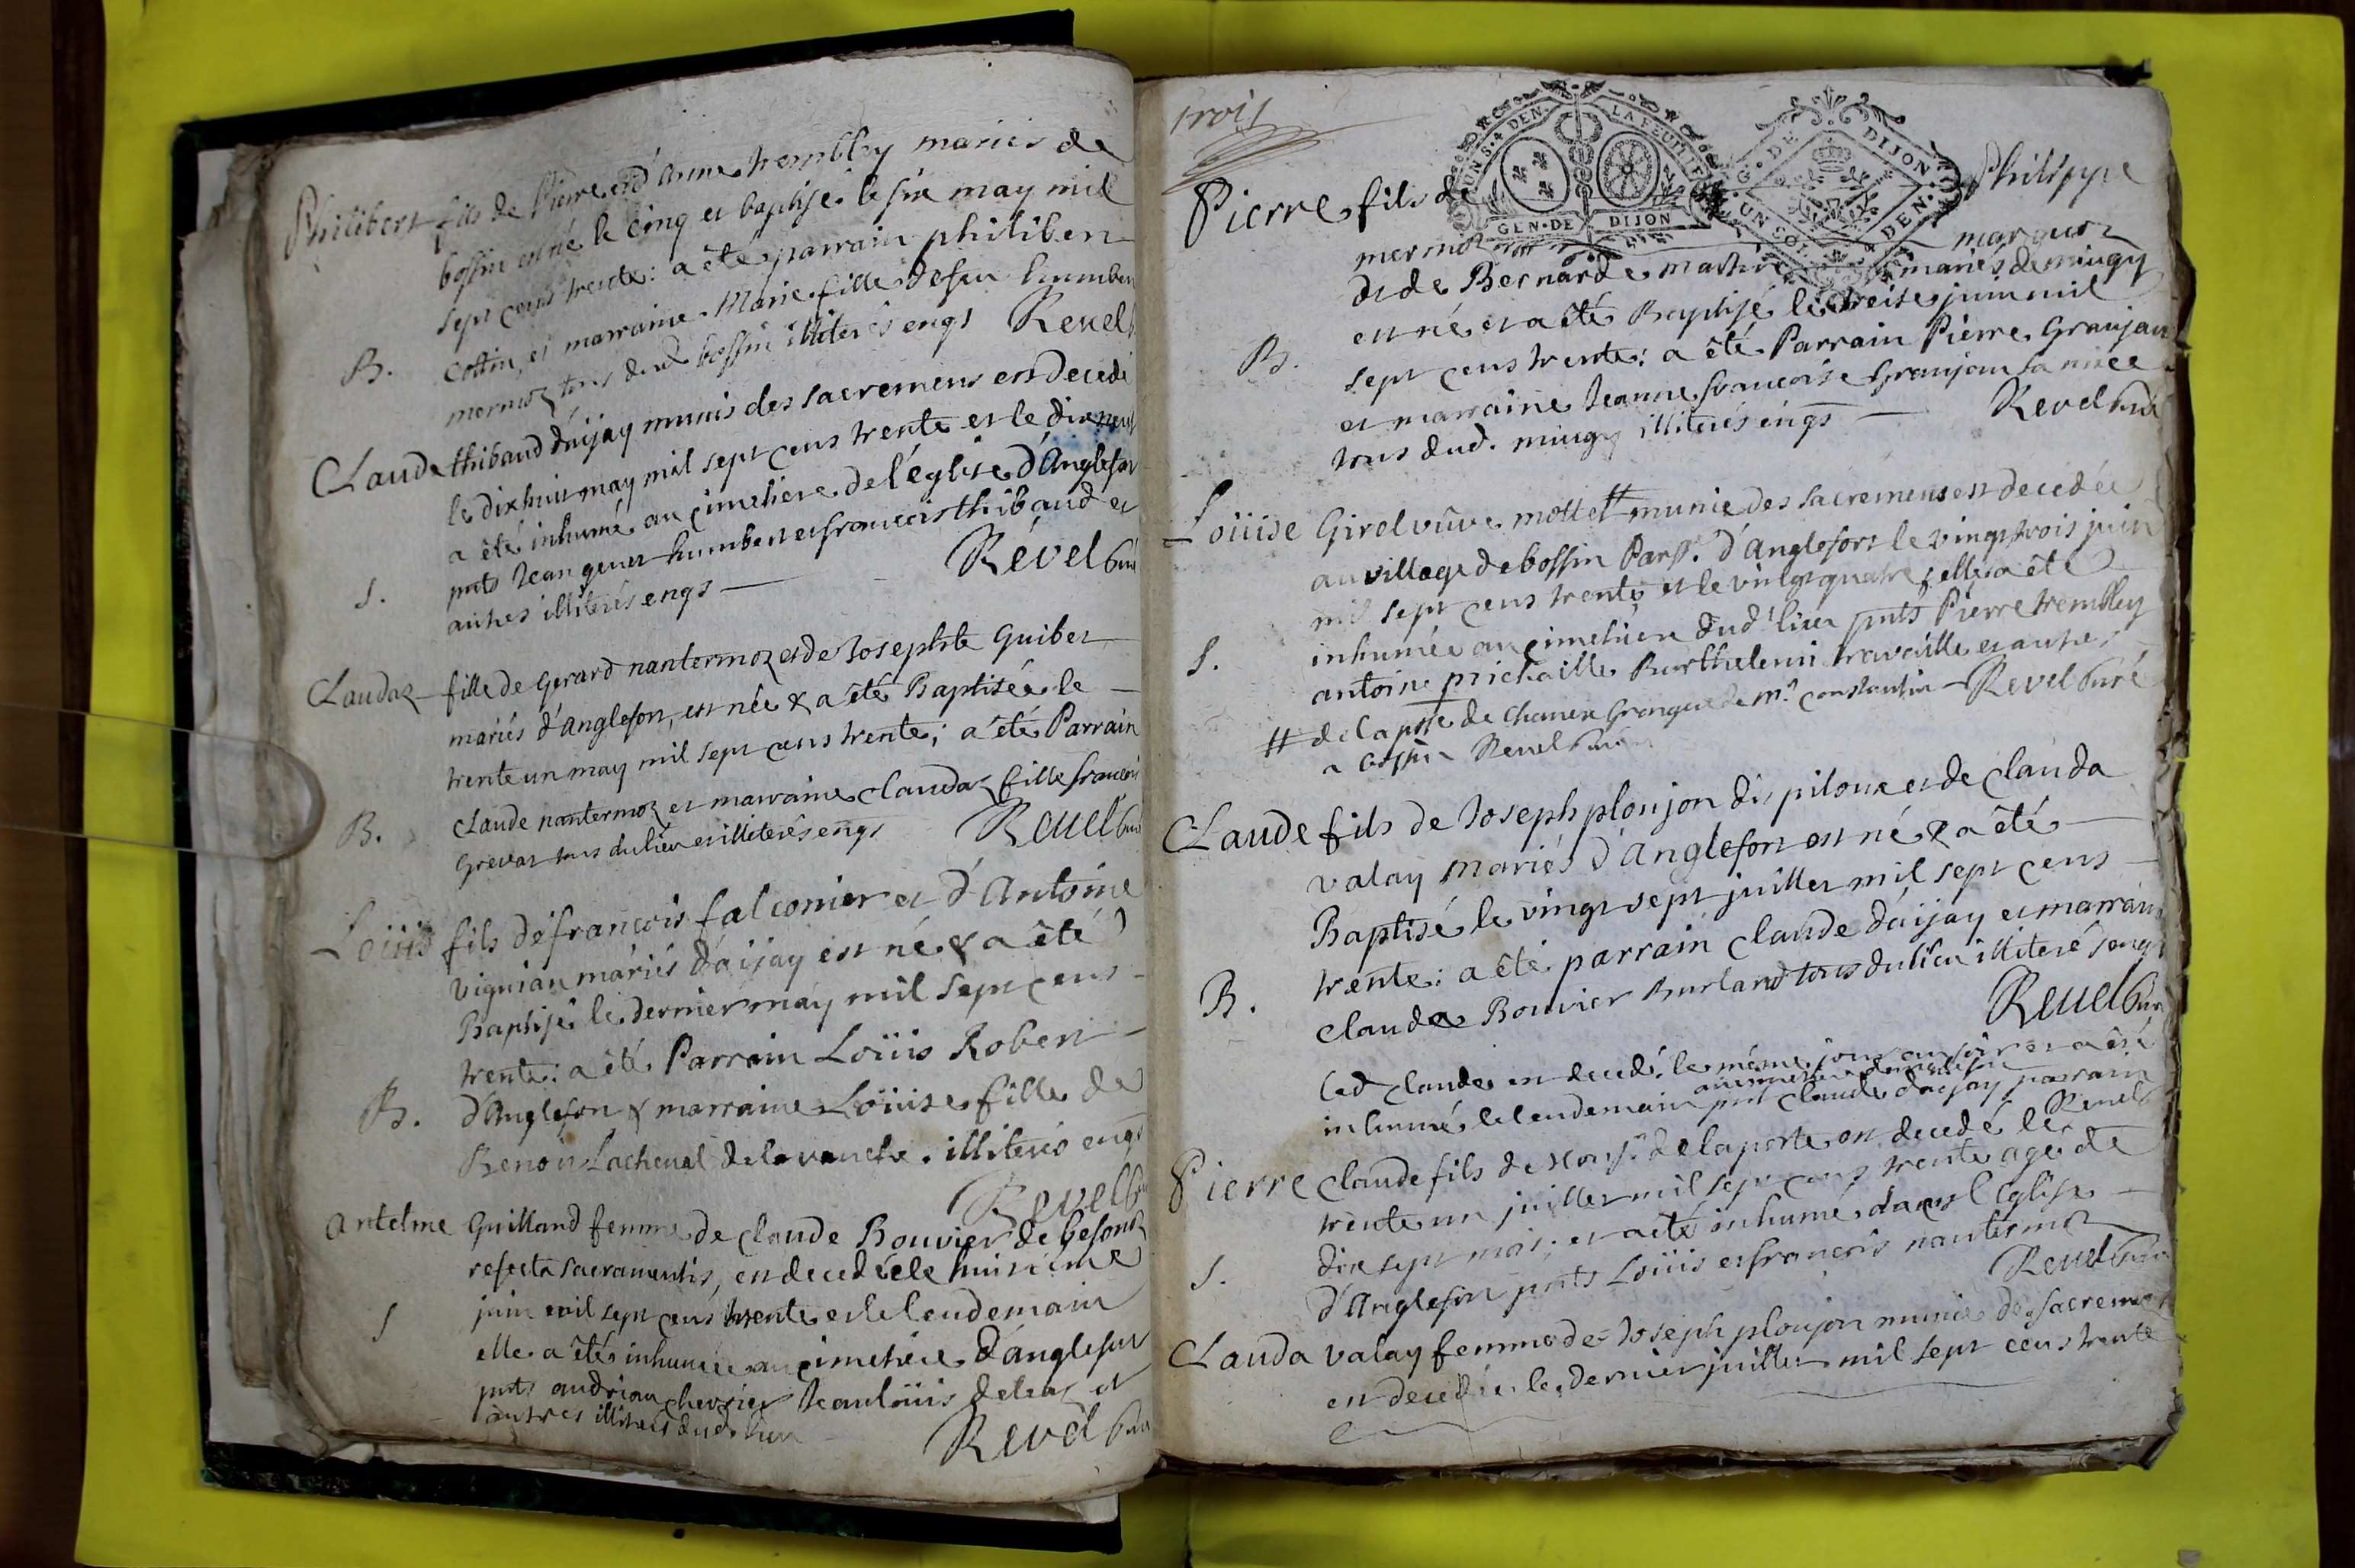 Philibert fils de Pierre et d'anne trembley mariés de
bossin est né le cinq et baptisé le six may mil
sept cens trente: a été parrain philibert
B. cottin, et marraine Marie fille de feu humbert
mermoz tous dud bossin illiterés enqs Revel
Claude thibaud daijay munis des sacremens est decedé
le dixhuit may mil sept cens trente et le dixneuf
a été inhumé au cimetiere de l'église d'Anglefort
S. pnts Jean genet humbert et francois thibaud et
autres illiterés enqs — Revel Curé
Claudaz fille de Gerard nantermoz et de Josephte Guibet
mariés d'anglefort, est née & a été Baptisée le —
trente un may mil sept cens trente; a été Parrain
B. Claude nantermoz et marraine Claudaz fille francois
Grevat tous du lieu et illiterés enqs Revel Curé
Loüis fils de françois falconier et d'Antoine
vignian mariés d'aijay est né & a été
Baptisé le dernier may mil sept cens —
trente: a été Parrain Loüis Robert —
B. d'Anglefort & marraine Loüise fille de
Benoit Lacheval de lavanche. illiterés enqs
Revel Curé
Antelme Guilland femme de Claude Bouvier de
refecta sacramentis, est decedée le huitième
S juin mil sept cens trente et le lendemain
elle a été inhumée au cimetière d'anglefort
pnts andrian chevrier Jean loüis et
autres illiterés dud. lieu Revel Curé
trois
UN S. 4 DEN. LA FEUILLE
GEN. DE DIJON
G. DE DIJON
UN SOL 4 DEN.
Pierre fils de Philippe
mermoz marquoz
et de Bernarde mariés de mingy
est né et a été Baptisé le treise juin mil
B. sept cens trente: a été Parrain Pierre Granjan
et marraine Jeanne francoise Granjan sa niéce
tous dud. mingy illiterés enqs — Revel Curé
Loüise Girel vûve mottet # munie des sacremens est decedée
au village de bossin Parss. d'Anglefort le vingt trois juin
mil sept cens trente et le vingt quatre elle a été
S. inhumée au cimetiere dud lieu pnts Pierre trembley
antoine prichaille Barthelemi travaille et autres
# de la psse de Chanea Grangere de Mr. constantin — Revel Curé
a bossin Revel Curé
Claude fils de Joseph ploujon dit piloux et de Clauda
valay mariés d'Anglefort est né & a été —
Baptisé le vingt sept juillet mil sept cens —
trente: a été parrain Claude daijay et marraine
B. Claudaz Bouvier Burland tous du lieu illiterés enqs
Revel Curé
Led Claude est decedé le même jour au soir et a été
inhumé le lendemain pnt Claude daijay parrain
Revel
Pierre Claude fils de Monsr. delaporte est decedé le
trente un juillet mil sept cens trente agé de
dix sept mois; et a été inhumé dans l'Eglise —
S. d'Anglefort pnts Loüis et francois nantermoz
Revel Curé
Clauda valay femme de Joseph ploujon munie des sacremens
est decedée le dernier juillet mil sept cens trente